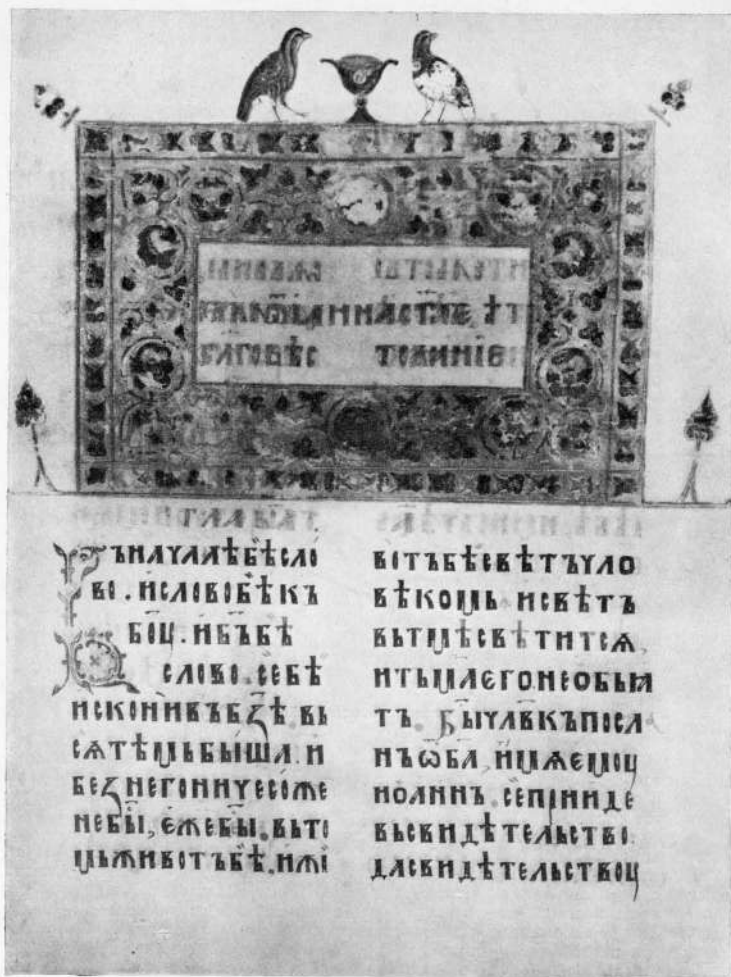 ГЛАВА А
ВЪНАЧАЛѢБѢСЛО
ВО. ИСЛОВОБѢКЪ
БОУ. ИБЪБѢ
СЛОВО. СЕБѢ
ИСКОНИВЪБꙀѢ. ВЬ
СѦТѢМЬБЫША. И
БЕꙀНЕГОНИЧЕСОЖЕ
НЕБЫ, ЕЖЕБЫ. ВЬТО
МЬЖИВОТЪБѢ. ИЖИ
ВОТЪБѢСВѢТЪЧЛО
ВѢКОМЬ. ИСВѢТЪ
ВЬТМѢСВѢТИТСѦ
ИТЬМАЄГО. НЕОБЬІѦ
ТЪ. БЫЧЛВКЪПОСЛА
НЪѠБА, ИМѦЄМОУ
ИОАННЪ. СЕПРИИДЕ
ВЬСВИДѢТЕЛЬСТВО.
ДАСВИДѢТЕЛЬСТВОУ